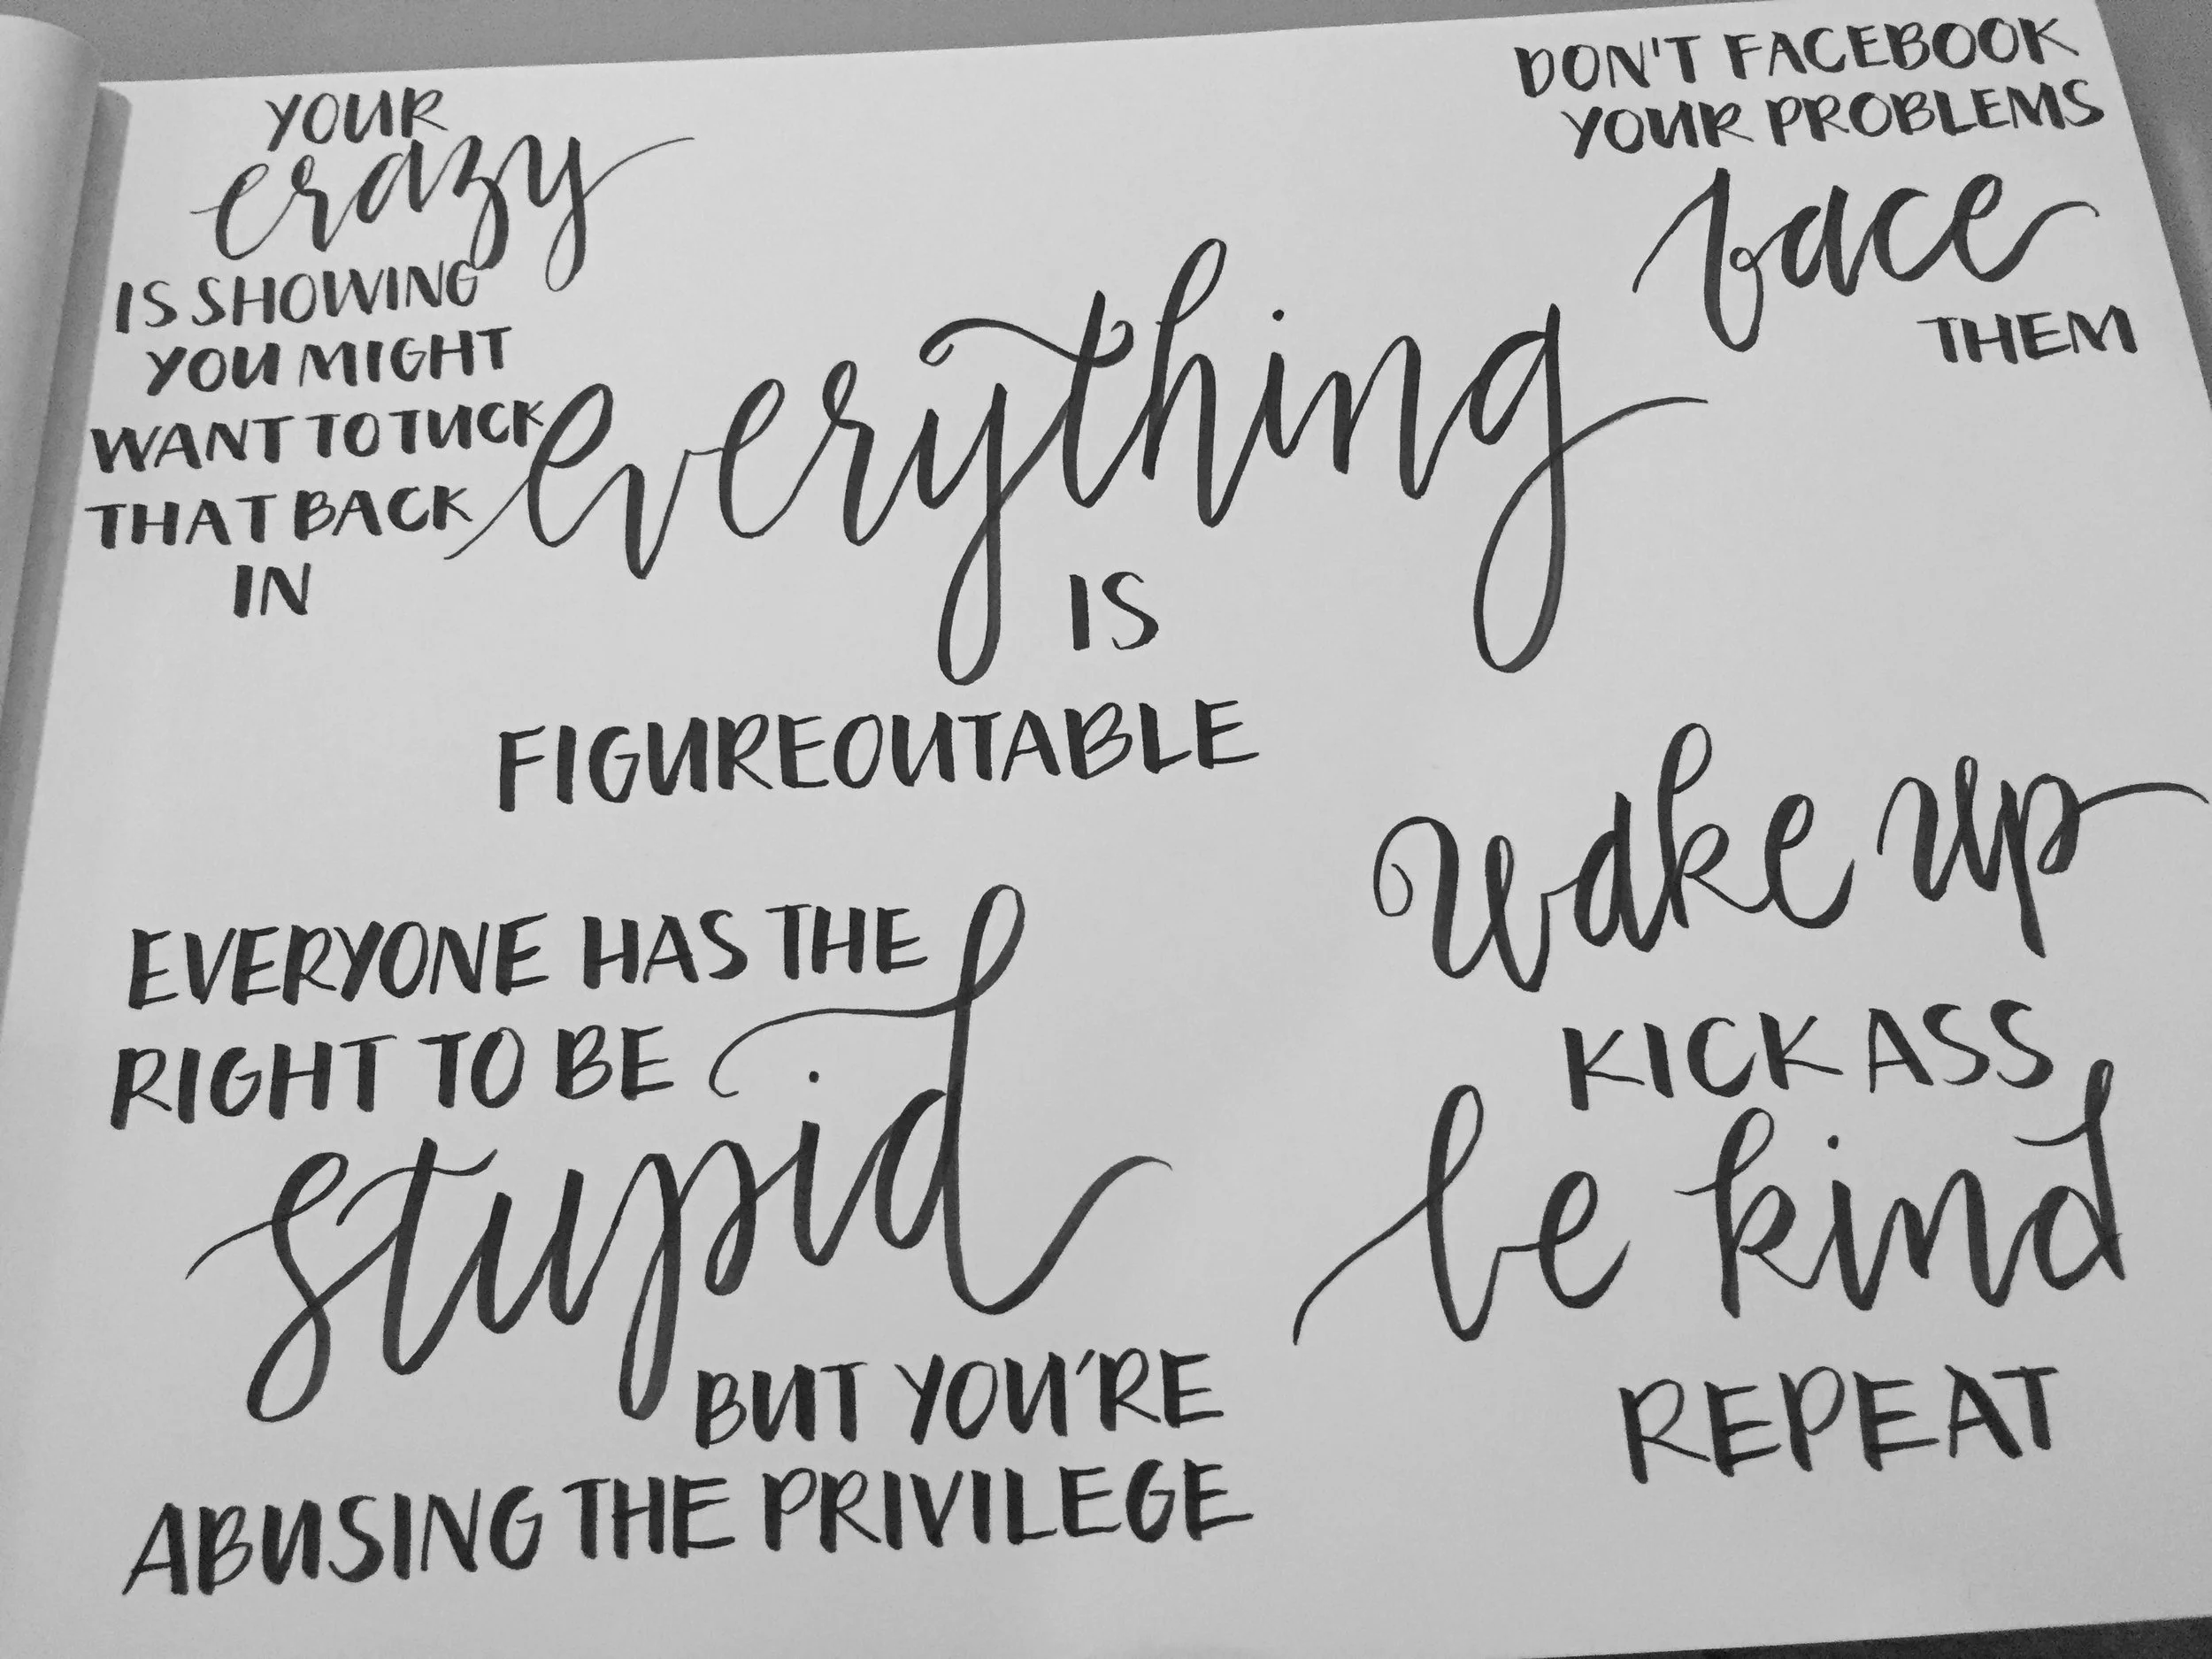 YOUR
crazy
IS SHOWING
YOU MIGHT
WANT TO TUCK
THAT BACK
IN
DON'T FACEBOOK
YOUR PROBLEMS
face
THEM
everything
IS
FIGUREOUTABLE
EVERYONE HAS THE
RIGHT TO BE
stupid
BUT YOU'RE
ABUSING THE PRIVILEGE
wake up
KICK ASS
be kind
REPEAT